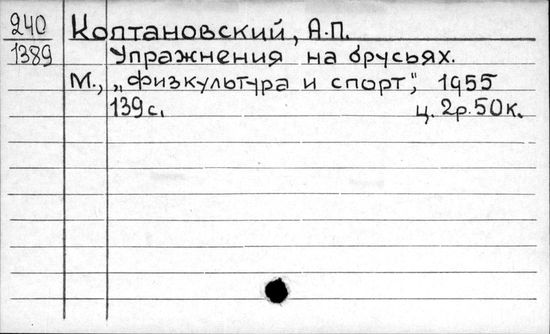 240 Колтановский, А.П.
1389 Упражнения на брусьях.
М., „Физкультура и спорт", 1955
139 с. ц. 2р. 50к.